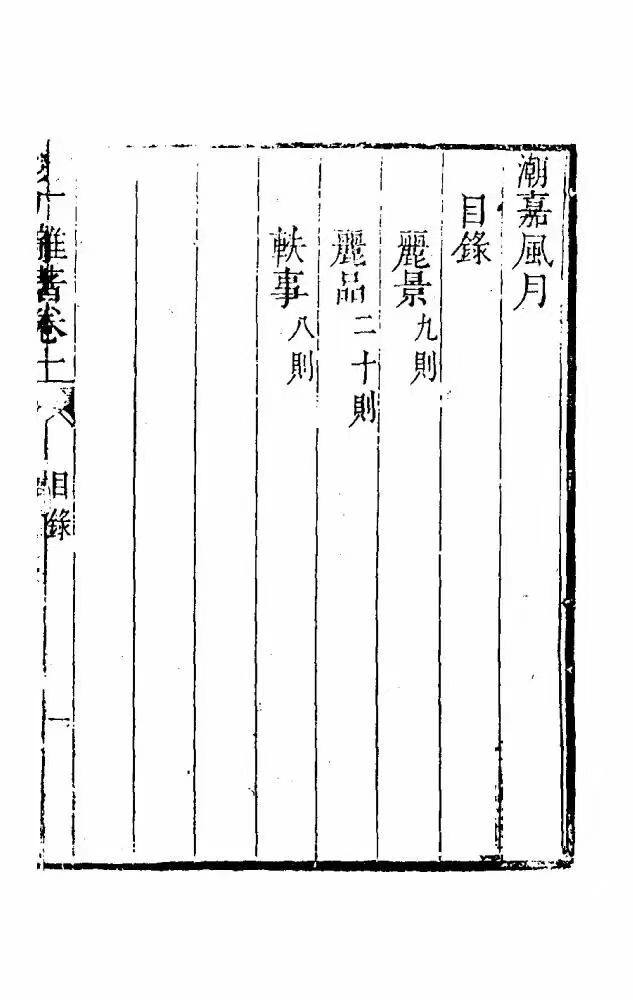 潮嘉風月
目錄
麗景九則
麗品二十則
軼事八則
雜著卷十
目錄
一